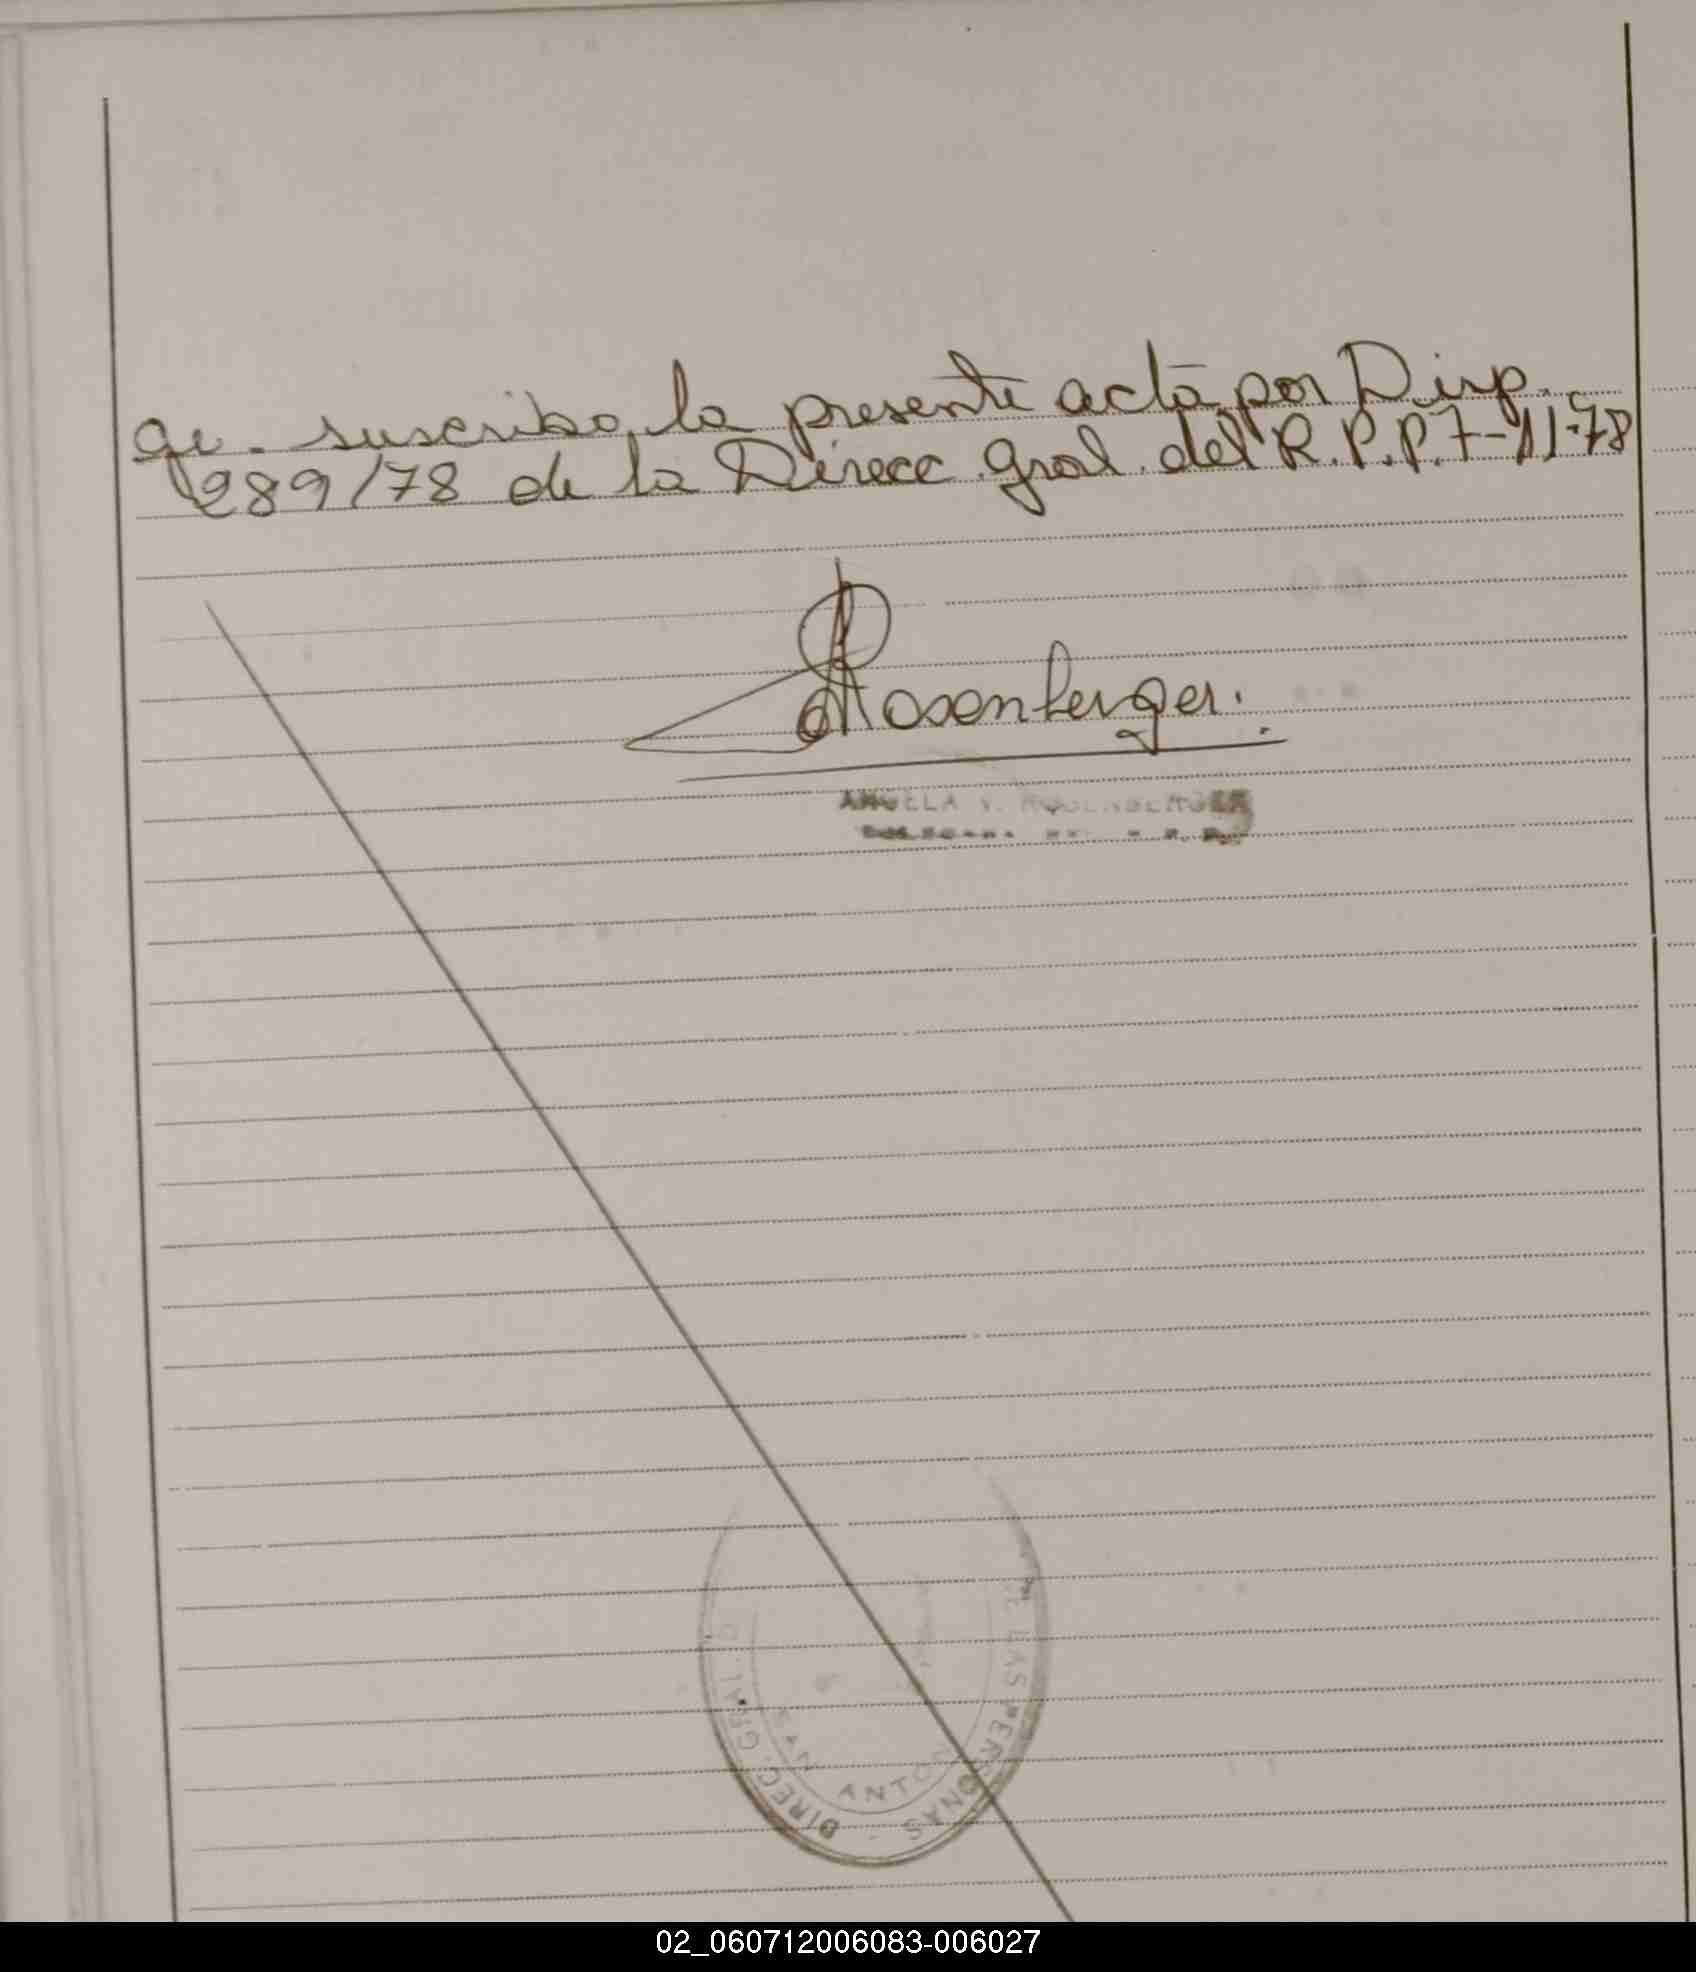 suscribo la presente acta por Disp.
289/78 de la Direcc. Gral. del R.P.P. 7-11-78
Rosenberger.
ANGELA V. ROSENBERGER
DIRECC. GRAL. D
DE LAS PERSONAS -
SAN ANTO
02_060712006083-006027